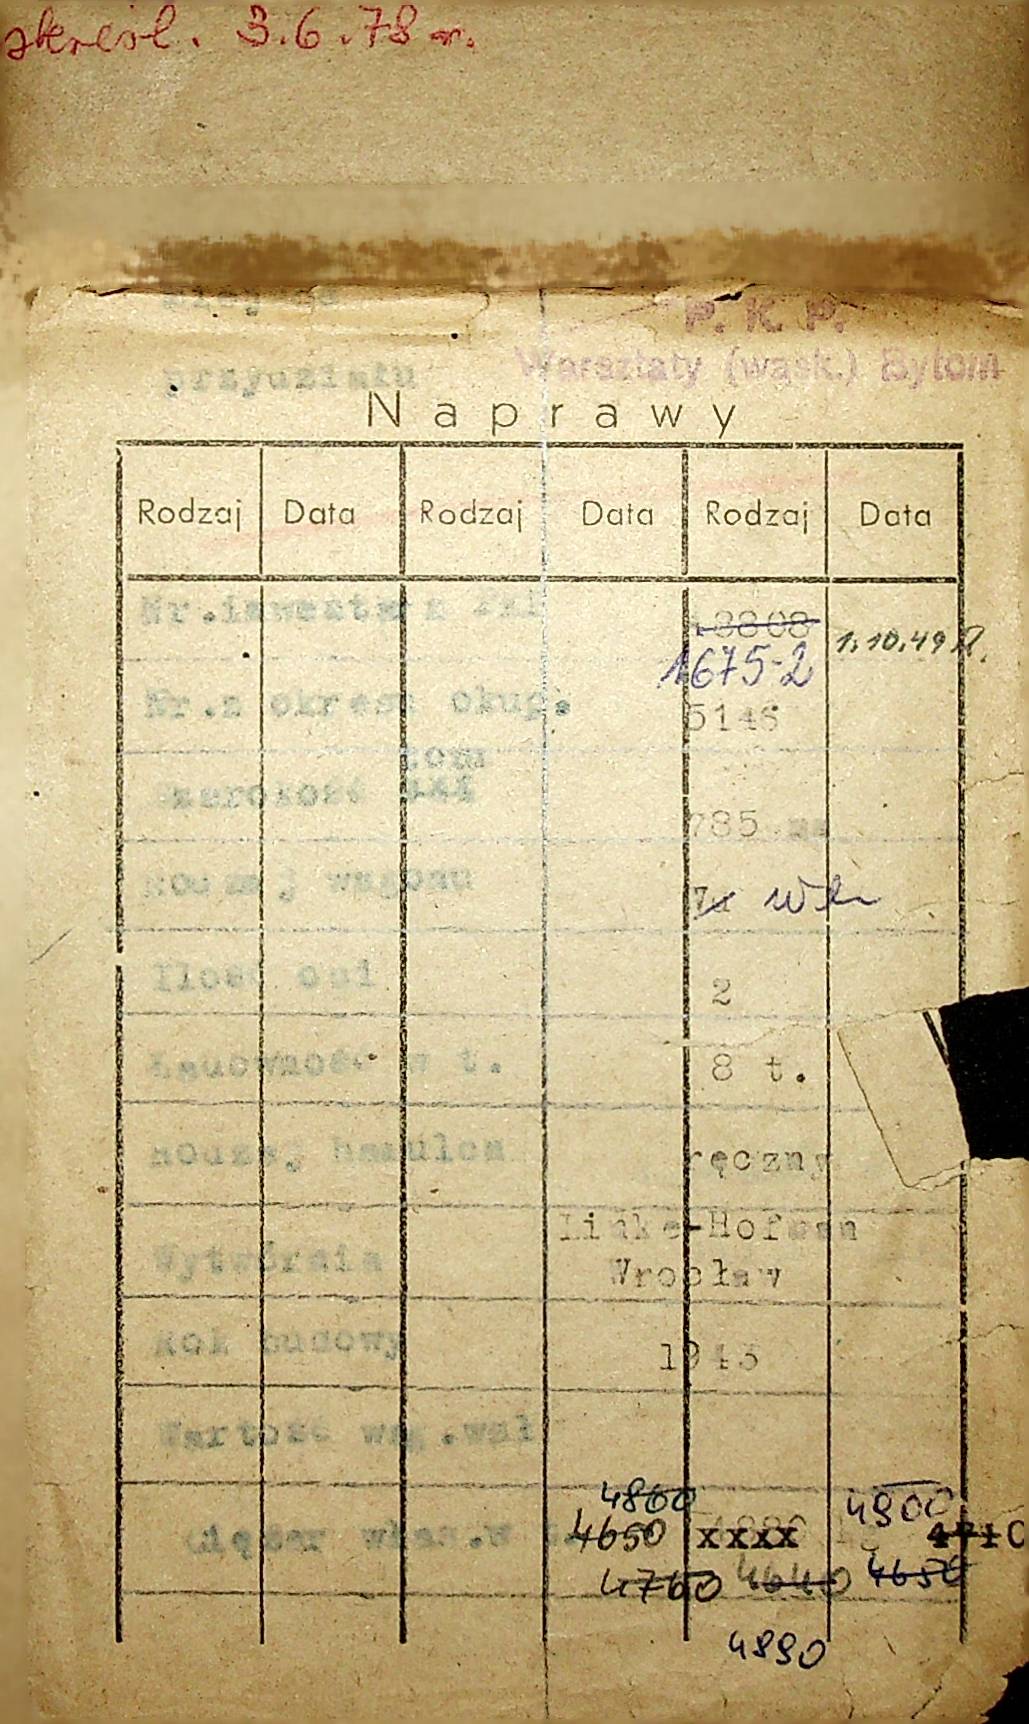 skreśl. 3.6.78 r.
P. K. P.
Warsztaty (wąsk.) Bytom
przydziału
Naprawy
Rodzaj Data Rodzaj Data Rodzaj Data
Nr.inwentarz PKP 18808 1.10.49 R.
1675-2
Nr.z okresu okup. 5146
toru
Szerokość xxx 785 mm
Rodzaj wagonu 7x Wh
Ilość osi 2
Ładowność w t. 8 t.
Rodzaj hamulca ręczny
Linke-Hofman
Wytwórnia Wrocław
Rok budowy 1943
Wartość wag.wał
4860 4900
Ciężar włas.w t. 4650 xxxx 4710
4760 4640 4650
4890